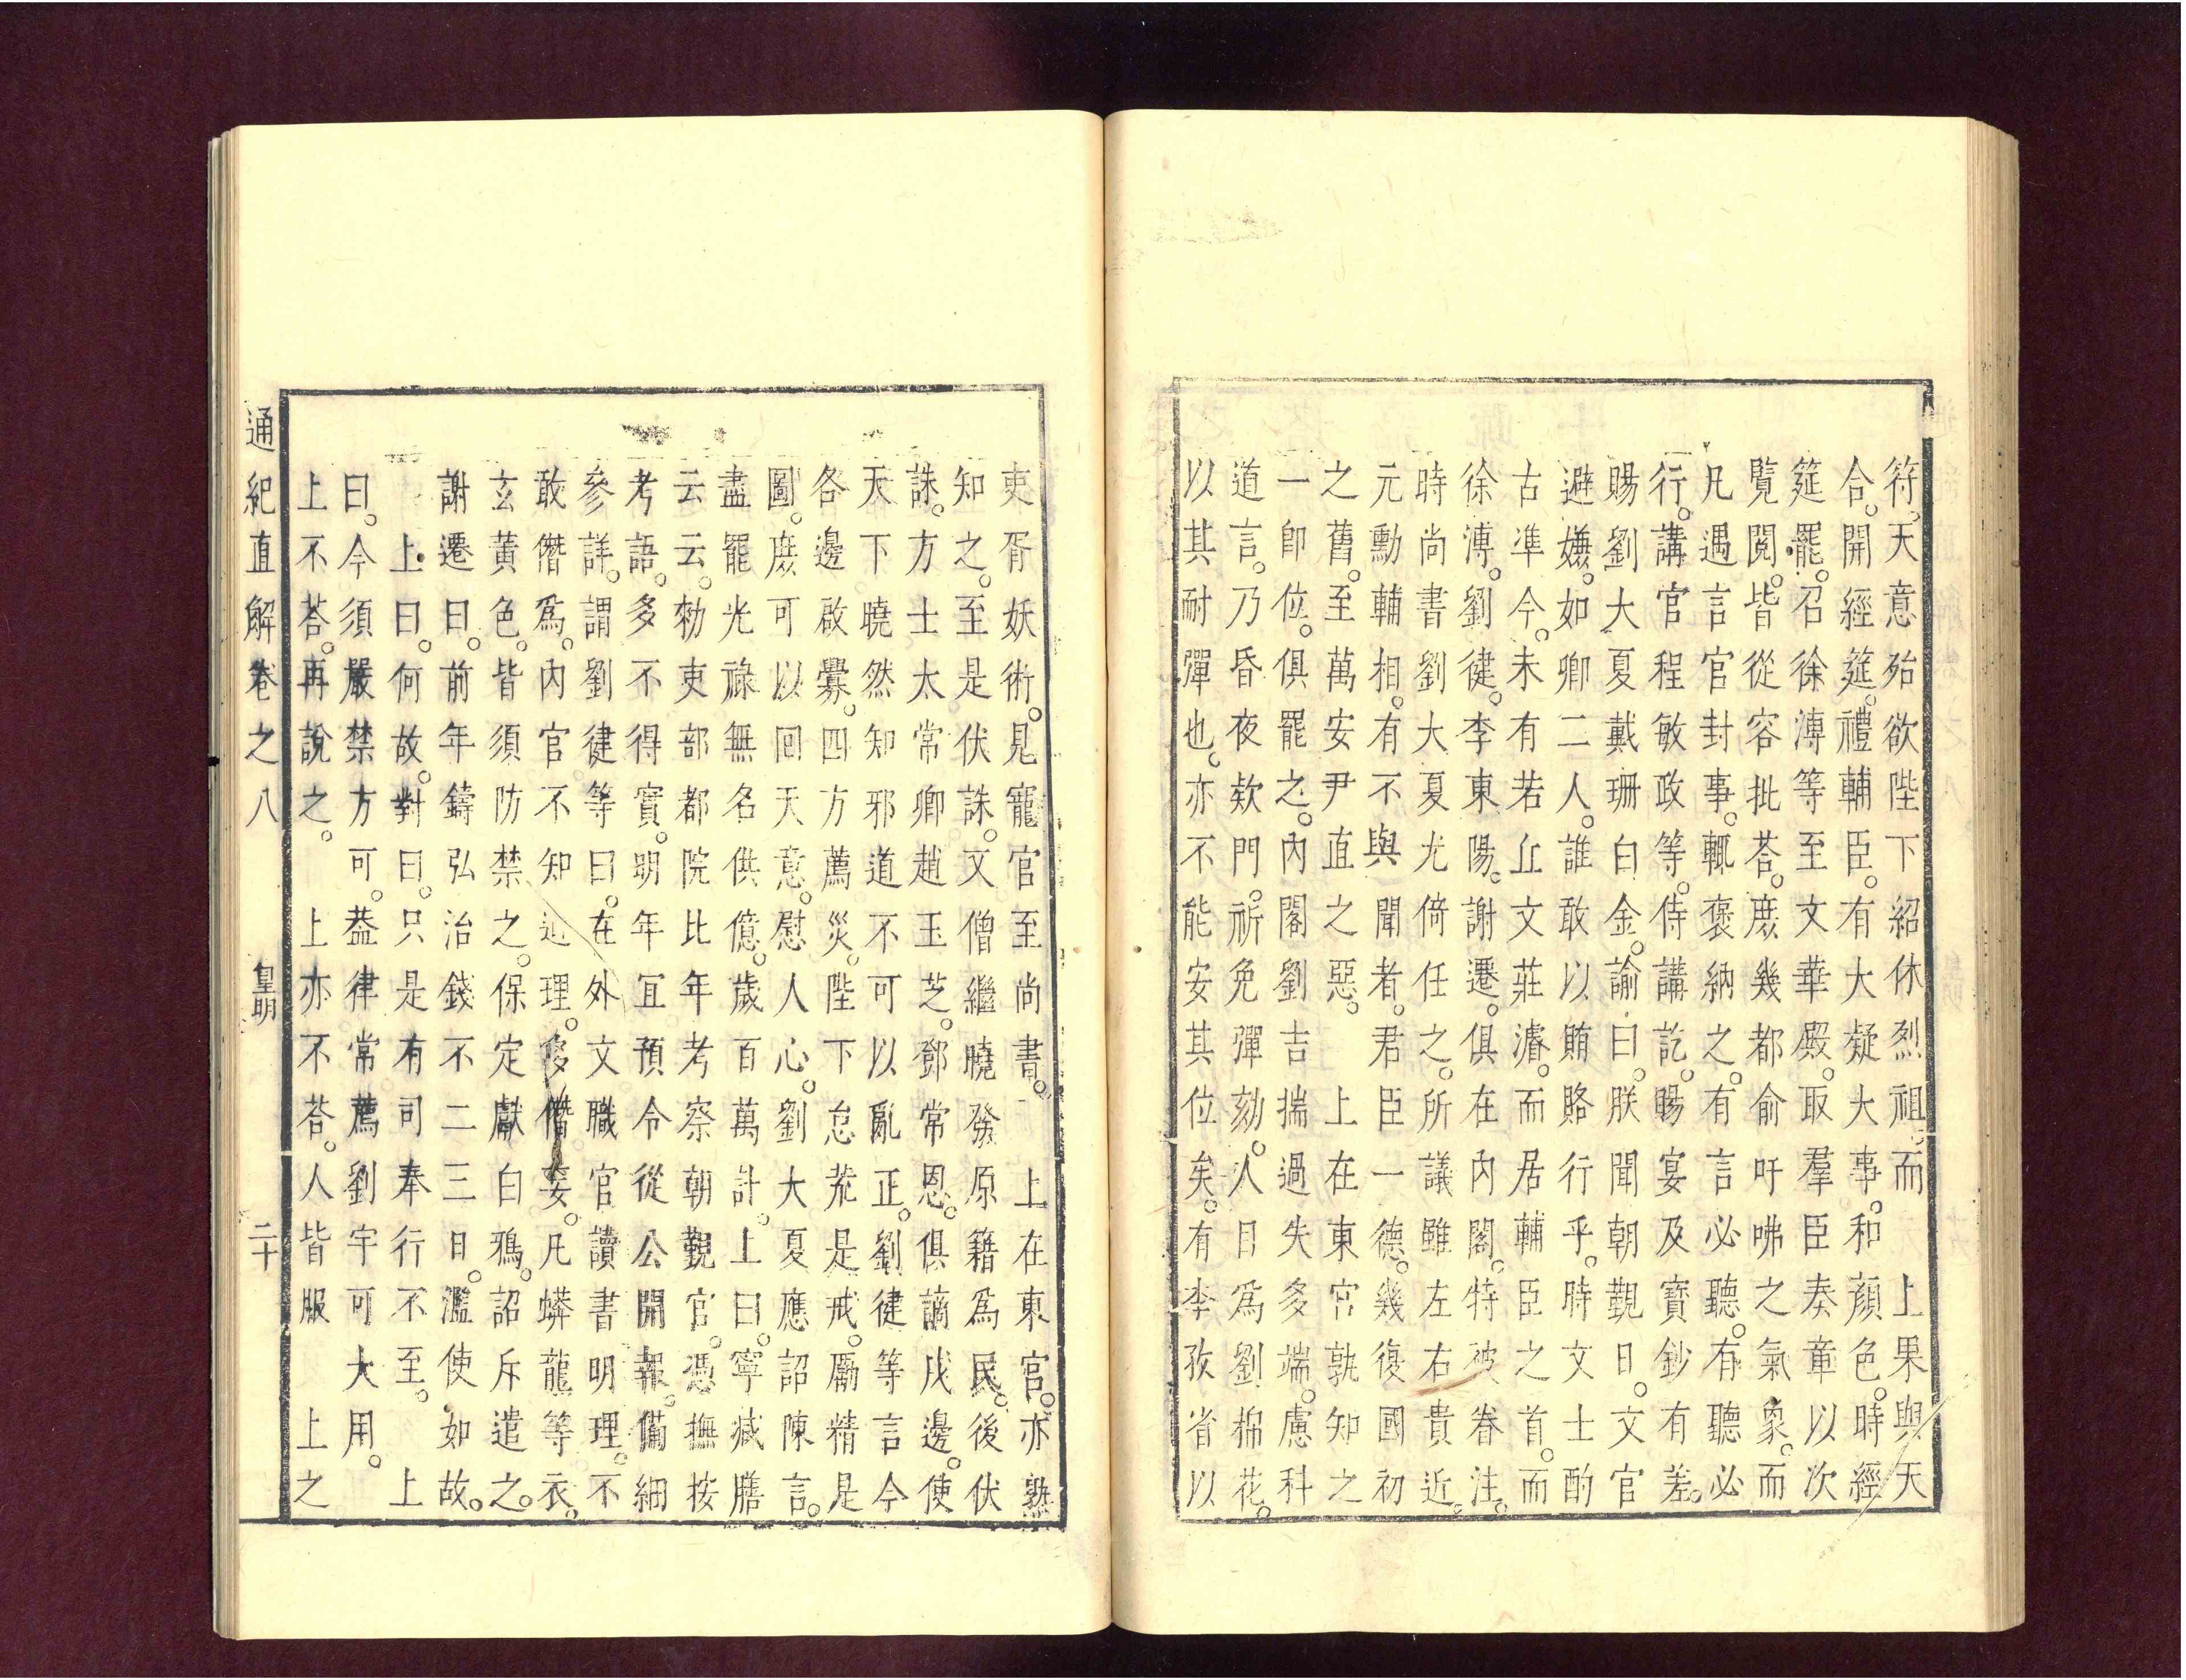 符。天意殆欲陛下紹休烈祖。而　上果與天
合。開經筵。禮輔臣。有大疑大事。和顔色。時經
筵罷。召徐溥等至文華殿。取羣臣奏章以次
覽閱。皆從容批荅。庶幾都俞吁咈之氣象。而
凡遇言官封事。輒褒納之。有言必聽。有聽必
行。講官程敏政等。侍講訖。賜宴及寶鈔有差。
賜劉大夏戴珊白金。諭曰。朕聞朝覲日。文官
避嫌。如卿二人。誰敢以賄賂行乎。時文士酌
古準今。未有若丘文莊濬。而居輔臣之首。而
徐溥。劉健。李東陽。謝遷。俱在內閣。特被眷注。
時尚書劉大夏尤倚任之。所議雖左右貴近。
元勳輔相。有不與聞者。君臣一德。幾復國初
之舊。至萬安尹直之惡。　上在東宮孰知之
一卽位。俱罷之。內閣劉吉揣過失多端。慮科
道言。乃昏夜欵門。祈免彈劾。人目爲劉棉花。
以其耐彈也。亦不能安其位矣。有李孜省以
吏胥妖術。見寵官至尚書。　上在東宮。亦熟
知之。至是伏誅。文僧繼曉發原籍爲民。後伏
誅。方士太常卿趙玉芝。鄧常恩。俱謫戍邊。使
天下曉然知邪道不可以亂正。劉健等言今
各邊啟釁。四方薦災。陛下怠荒是戒。勵精是
圖。庶可以回天意。慰人心。劉大夏應詔陳言。
盡罷光祿無名供億。歲百萬計。上曰。寧減膳
云云。勑吏部都院比年考察朝覲官。憑撫按
考語。多不得實。明年冝預令從公開報。備細
參詳。謂劉健等曰。在外文職官讀書明理。不
敢僭爲。內官不知道理。多僭妄。凡蟒龍等衣。
玄黃色。皆須防禁之。保定獻白鴉。詔斥遣之。
謝遷曰。前年鑄弘治錢不二三日。濫使如故。
　上曰。何故。對曰。只是有司奉行不至。　上
曰。今須嚴禁方可。葢律常薦劉宇可大用。
上不荅。再說之。　上亦不荅。人皆服　上之
通紀直解卷之八　皇明　二十